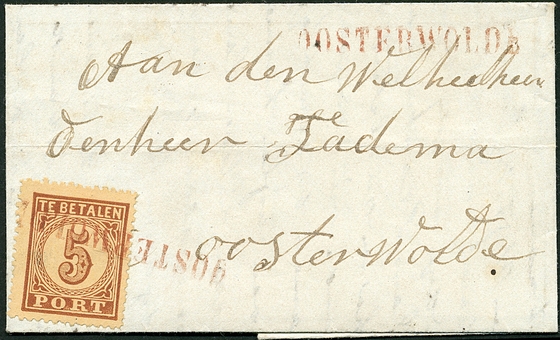 OOSTERWOLDE
Aan den Welheelheer
denheer Tadema
oosterwolde
TE BETALEN
5
PORT
OOSTERWOLDE